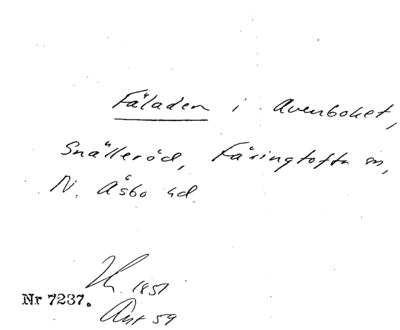 Fäladen i Avenboket,
Snälleröd, Färingtofta sn,
N. Åsbo hd.
1851
Nr 7237.
Ant 59